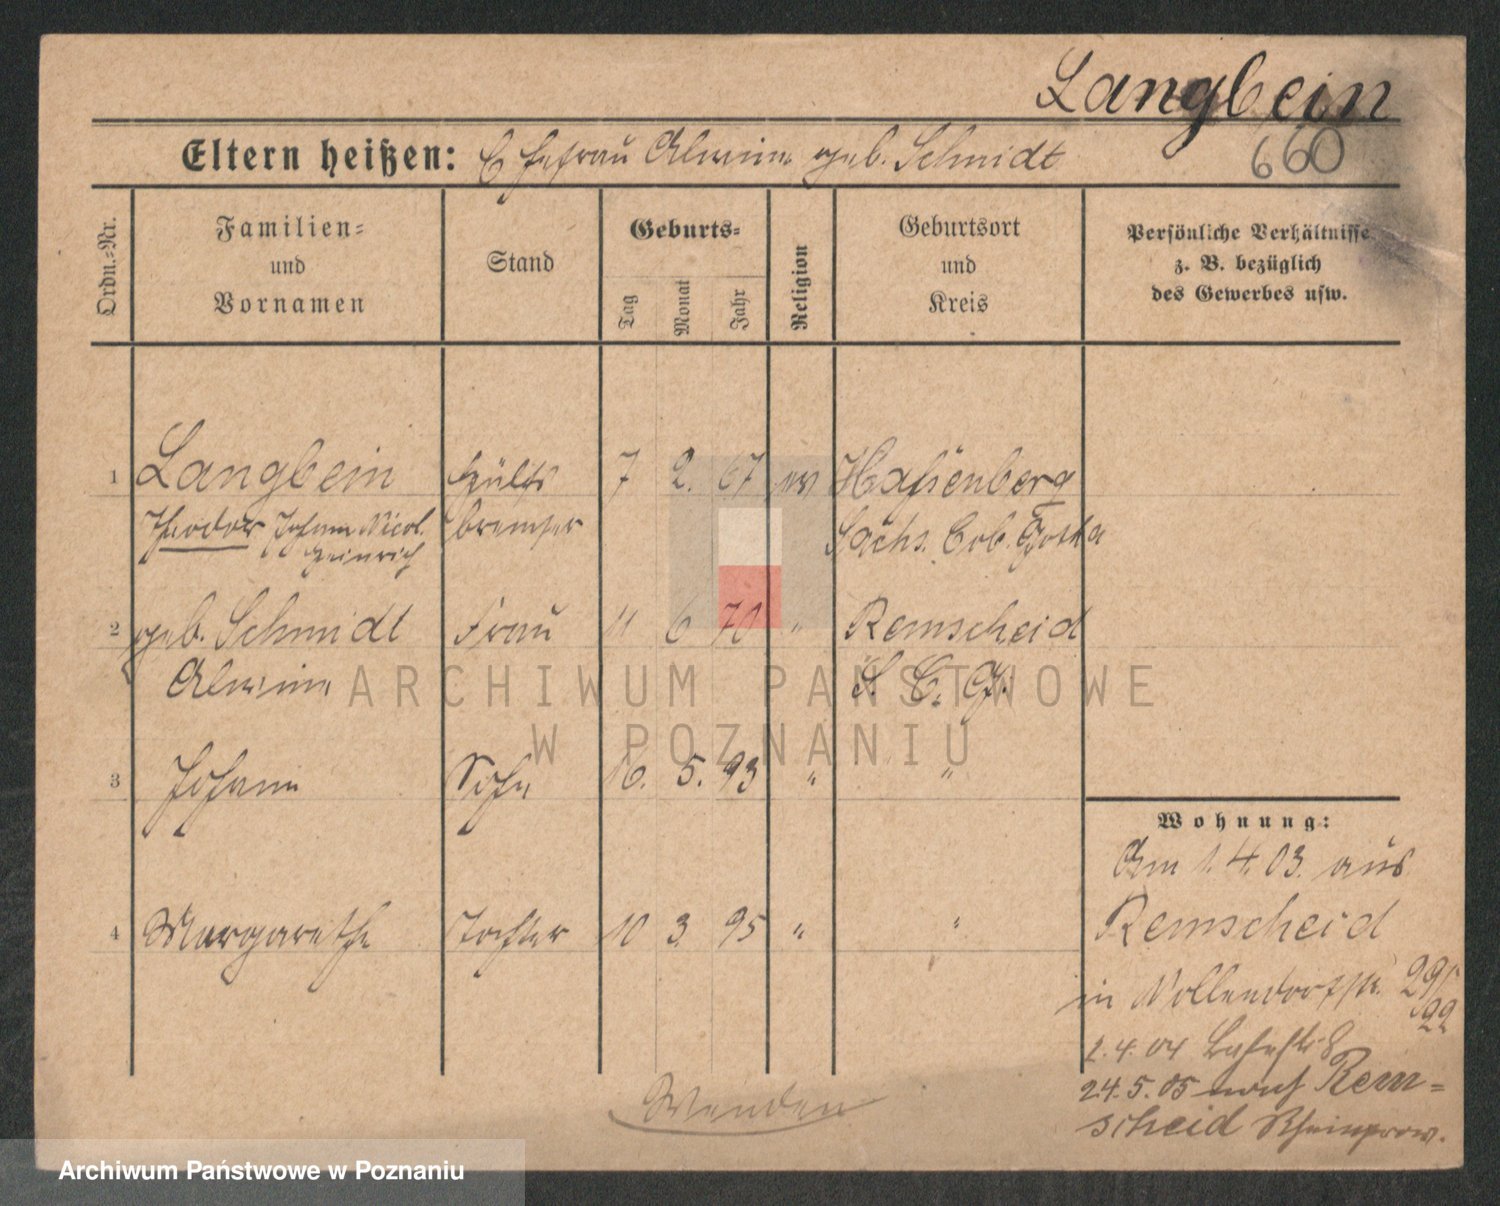 Langbein
660
Eltern heißen: Ehefrau Alwine geb. Schmidt
Ordn.-Nr.
Familien-
und
Vornamen
Stand
Geburts-
Tag
Monat
Jahr
Religion
Geburtsort
und
Kreis
Persönliche Verhältnisse
z. B. bezüglich
des Gewerbes usw.
1 Langbein Hülfs 7 2. 67 ev Haſsenberg
Theodor Johann Nicol. bremser Sachs. Cob. Gotha
Heinrich
2 geb. Schmidt Frau 11 6 70 " Remscheid
Alwine S. C. G.
3 Johann Sohn 16. 5. 93 " "
4 Margarethe Tochter 10 3 95 " "
Wohnung:
Am 1.4.03. aus
Remscheid
in Nollendorfstr. 29/
22
2.4.04 Bahnstr. 8
24.5.05 nach Rem-
scheid Rheinprov.
Wenden
ARCHIWUM PAŃSTWOWE
W POZNANIU
Archiwum Państwowe w Poznaniu